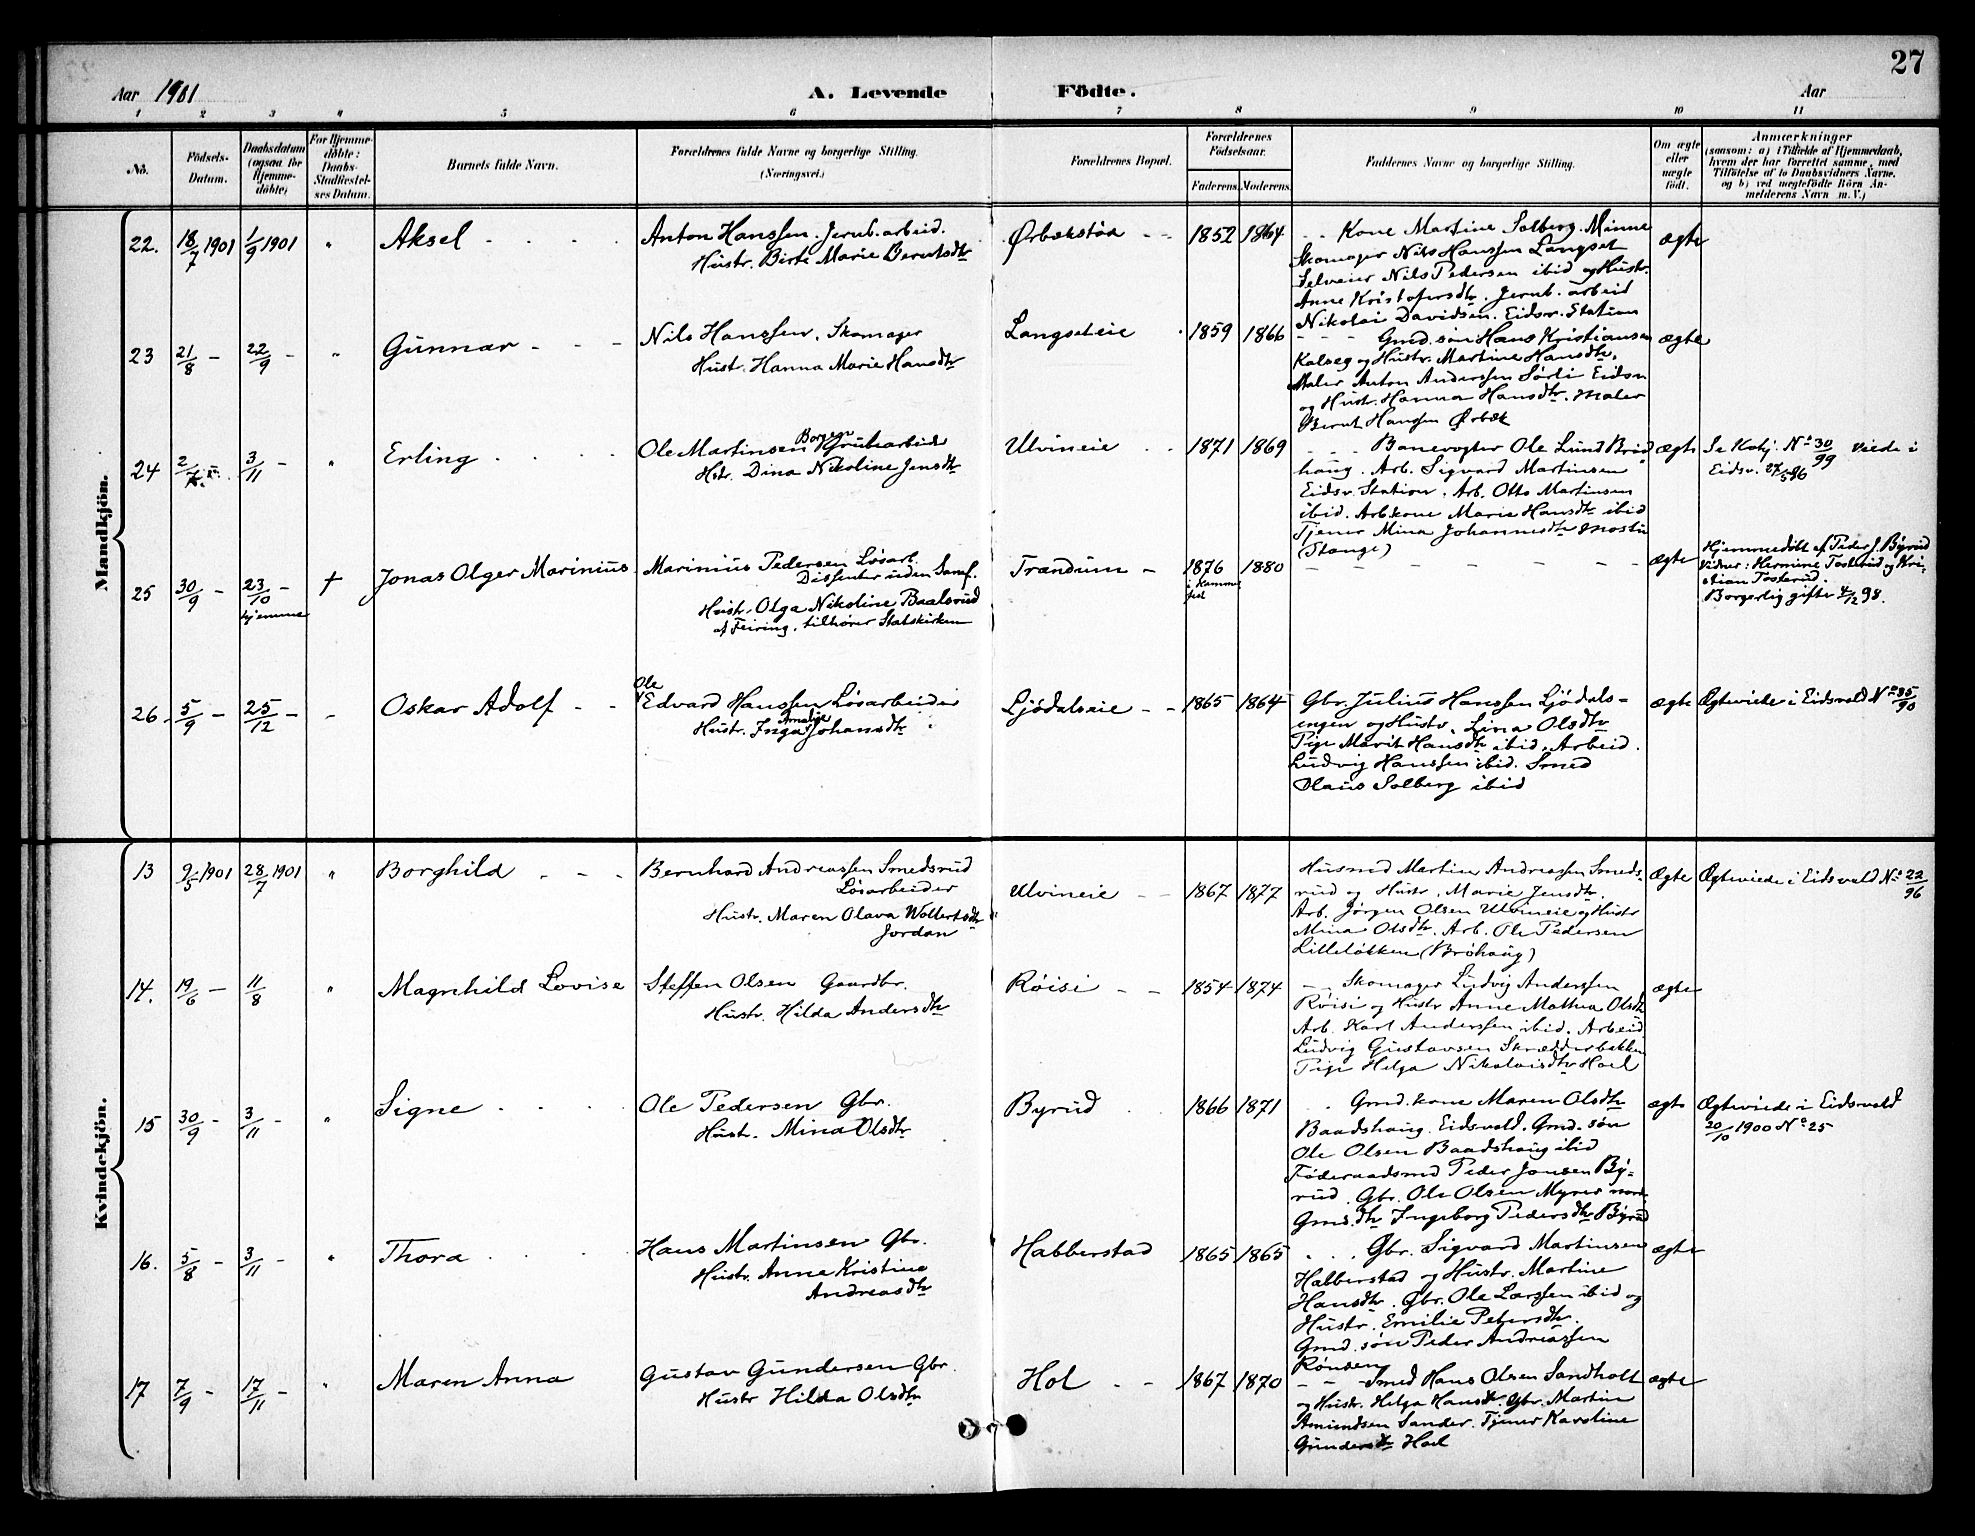 27
Aar 1901 A. Levende Födte. Aar
1 2 3 4 5 6 7 8 9 10 11
No.
Födsels-Datum.
Daabsdatum (ogsaa for Hjemmedöbte)
For Hjemmedöbte: Daabs-Stadfæstelses Datum.
Barnets fulde Navn.
Forældrenes fulde Navne og borgerlige Stilling. (Næringsvei.)
Forældrenes Bopæl.
Forældrenes Födselsaar.
Faderens. Moderens.
Faddernes Navne og borgerlige Stilling.
Om ægte eller uægte födt.
Anmærkninger
(saasom: a) i Tilfælde af Hjemmedaab, hvem der har forrettet samme, med Tilföielse af to Daabsvidners Navne. og b) ved uægtefödte Börn Anmelderens Navn m. V.)
Mandkjön.
22. 18/7 1901 1/9 1901 " Aksel
Anton Hanssen. Jernb. arbeid.
Hustr. Birte Marie Berntsdtr
Ørbækstøa 1852 1864
Kone Martine Solberg. Minne
Skomager Nils Hanssen Langset
Selveier Nils Pedersen ibid og Hustr.
Anne Kristofersdtr. Jernb. arbeid
Nikolai Davidsen. Eidsv. Station
ægte
23 21/8 – 22/9 – " Gunnar
Nils Hanssen. Skomager
Hust. Hanna Marie Hansdtr
Langseteie 1859 1866
Gmd. søn Hans Kristiansen
Kalseg og Hustr. Martine Hansdtr.
Maler Anton Anderssen Sørli Eidsv
og Hustr. Hanna Hansdtr. Maler
Bernt Hanssen Ørbæk
ægte
24 2/7 3/11 – " Erling
Ole Martinsen Borgen Grubearbeide
Hstr. Dina Nikoline Jensdtr
Ulvineie 1871 1869
Banevogter Ole Lund Brød
haug. Arb. Sigvard Martinsen
Eidsv. Station. Arb. Otto Martinsen
ibid. Arb.kone Marie Hansdtr ibid
Tjener Mina Johannesdtr
(Stange)
ægte
Se N° 30/99 viede i
Eidsv. 27/5 96
25 30/9 – 23/10 – hjemme † Jonas Olger Marinius
Marinius Pedersen Løsarb.
Dissenter uden Samf.
Hustr. Olga Nikoline Baalsrud
af Feiring, tilhører Statskirken
Trandum – 1876 1880
ægte
Hjemmedøbt af Peder J. Byrud
Vidner: Hermine Tosterud og Kri-
stian Tosterud.
Borgerlig gifte 4/12 98.
26. 5/9 – 25/12 – Oskar Adolf
Ole Edvard Hanssen Løsarbeider
Hustr. Inga Amalie Johansdtr
Ljödalseie 1865 1864
Gbr. Julius Hanssen Ljödals-
engen og Hustr. Lina Olsdtr
Pige Marit Hansdtr ibid. Arbeid.
Ludvig Hanssen ibid. Smed
Olaus Solberg ibid
ægte
Ægteviede i Eidsvold N° 35/90
Kvindekjön.
13 9/5 1901 28/7 1901 " Borghild
Bernhard Andreassen Smedsrud
Løsarbeider
Hustr. Maren Olava Wollertsdtr
Jordan
Ulvineie 1867 1877
Husmd Martin Andreassen Smeds-
rud og Hustr. Marie Jensdtr.
Arb. Jørgen Olsen Ulvineie og Hustr
Mina Olsdtr. Arb. Ole Pedersen
Lilleløkken (Brøhaug)
Ægte
Ægteviede i Eidsvold N° 22/96
14. 19/6 – 11/8 " Magnhild Lovise
Steffen Olsen Gaardbr.
Hustr. Hilda Andersdtr
Røisi 1854 1874
Skomager Ludvig Anderssen
Røisi og Hustr Anne Mathea Olsdtr
Arb. Karl Anderssen ibid. Arbeid
Ludvig Gustavsen Skrædderbakken
Pige Helga Nikolaisdtr Hoel
ægte
15 30/9 – 3/11 – " Signe
Ole Pedersen Gbr.
Hustr. Mina Olsdtr.
Byrud 1866 1871
Gmd. kone Maren Olsdtr
Baadshaug. Eidsvold. Gmd. søn
Ole Olsen Baadshaug ibid
Föderaadsmd Peder Jonsen By-
rud. Gbr. Ole Olsen Myrer nord.
Gmd. dtr Ingeborg Pedersdtr Byrud
ægte
Ægteviede i Eidsvold
20/10 1900 N° 25
16. 5/8 – 3/11 – " Thora
Hans Martinsen Gbr.
Hustr. Anna Kristine
Andreasdtr
Habberstad 1865 1865
Gbr. Sigvard Martinsen
Habberstad og Hustr. Martine
Hansdtr. Gbr. Ole Larssen ibid og
Hustr. Emilie Petersdtr.
Gmd. søn Peder Andreassen
Rønsen
ægte
17 7/9 – 17/11 – " Maren Anna
Gustav Gundersen Gbr.
Hustr Hilda Olsdtr
Hol 1867 1870
Smed Hans Olsen Sandholt
og Hustr. Helga Hansdtr. Gbr. Martin
Amundsen Sander. Tjener Karoline
Gundersdtr Hoel
ægte